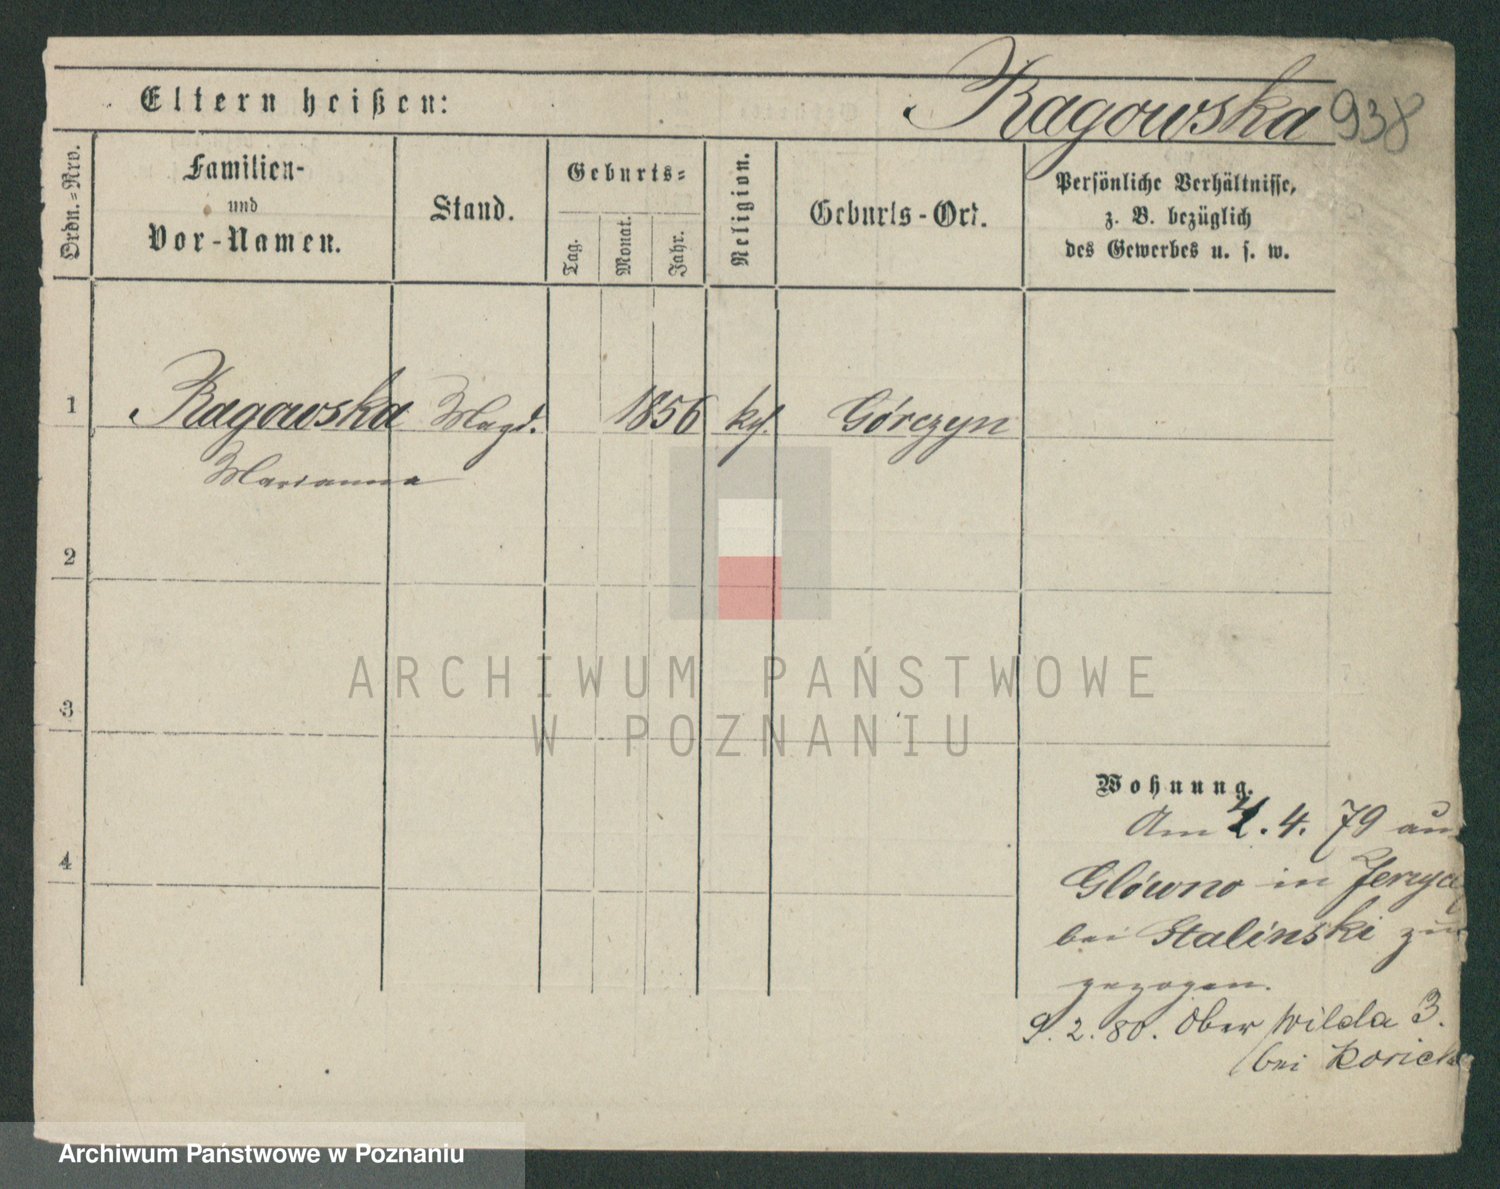 Eltern heißen:
Ragowska 938
Ordn.=Nro.
Familien-
und
Vor-Namen.
Stand.
Geburts=
Tag.
Monat.
Jahr.
Religion.
Geburts-Ort.
Persönliche Verhältnisse,
z. B. bezüglich
des Gewerbes u. s. w.
1 Ragowska Magd. 1856 kgl. Górczyn
Marianna
2
3
4
ARCHIWUM PAŃSTWOWE
W POZNANIU
Wohnung.
Am 4. 79 aus
Glówno in
bei Stalinski zu
gezogen.
9. 2. 80. Ober Wilda 3.
bei
Archiwum Państwowe w Poznaniu